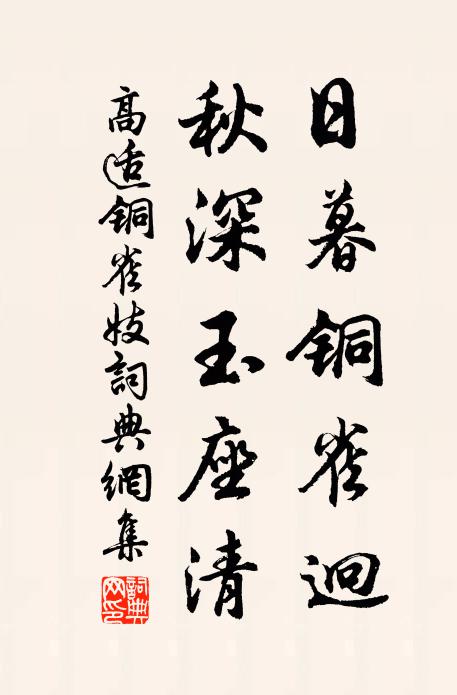 日暮铜雀迥
秋深玉座清
高适铜雀妓詞典網集
詞典网印